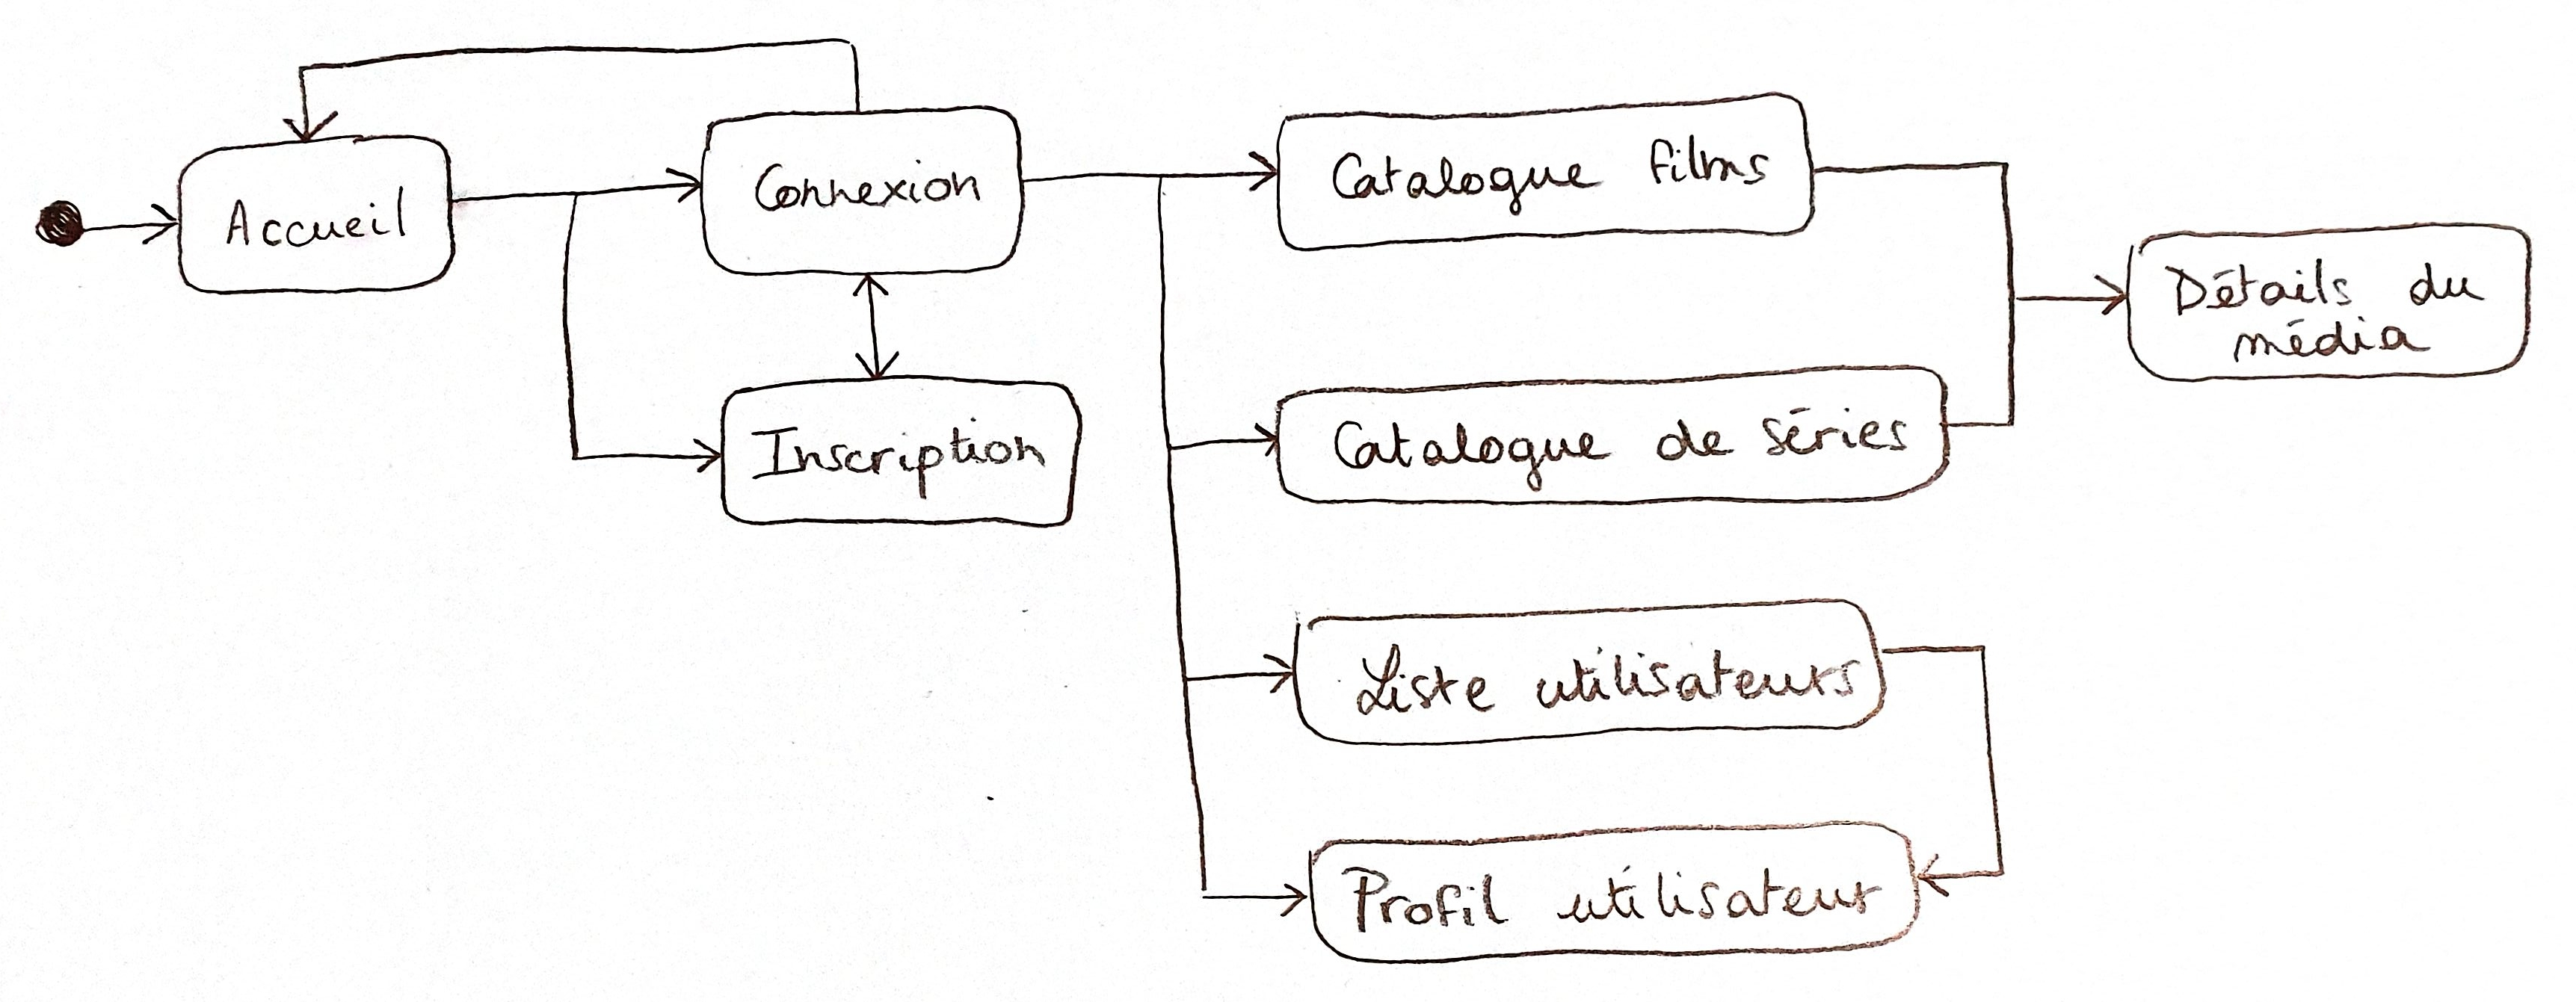 Accueil
Connexion
Inscription
Catalogue films
Catalogue de séries
Liste utilisateurs
Profil utilisateur
Détails du
média